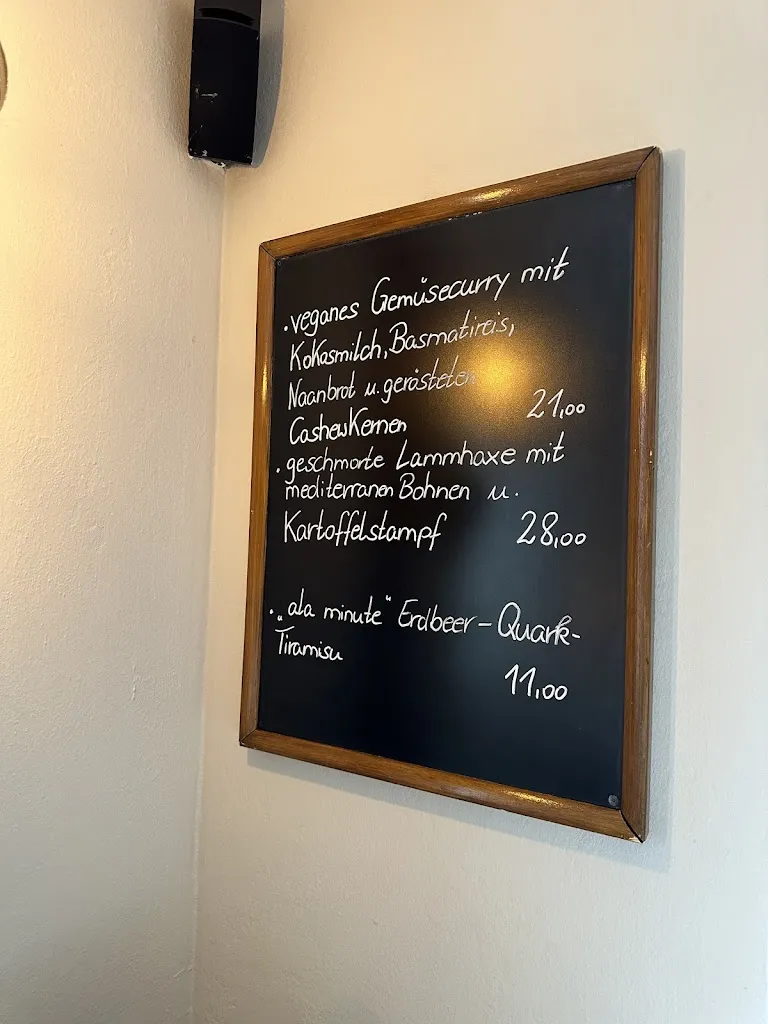 · veganes Gemüsecurry mit
Kokosmilch, Basmatireis,
Naanbrot u. gerösteten
Cashewkernen 21,00
· geschmorte Lammhaxe mit
mediterranen Bohnen u.
Kartoffelstampf 28,00
· „ala minute“ Erdbeer-Quark-
Tiramisu
11,00